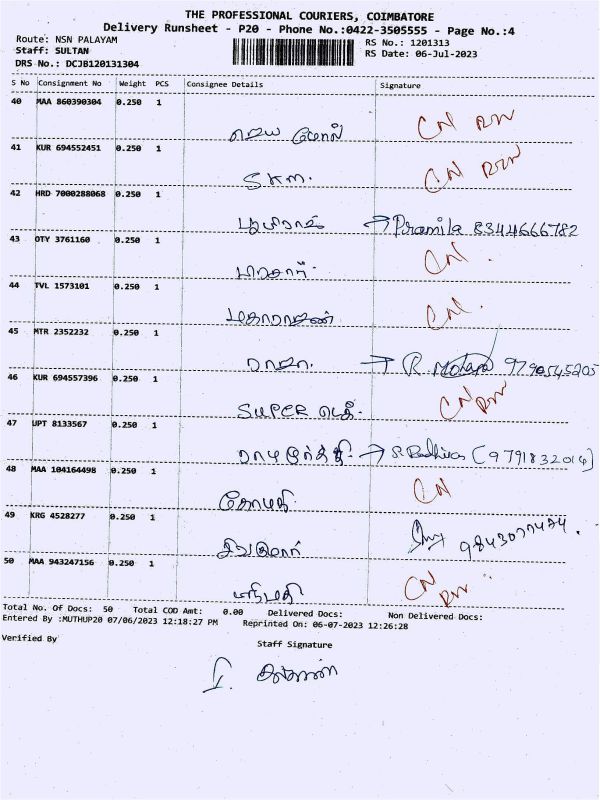 THE PROFESSIONAL COURIERS, COIMBATORE
Delivery Runsheet - P20 - Phone No.:0422-3505555 - Page No.:4
Route: NSN PALAYAM
RS No.: 1201313
Staff: SULTAN
RS Date: 06-Jul-2023
DRS No.: DCJB120131304
S No Consignment No Weight PCS Consignee Details Signature
40 MAA 860390304 0.250 1
ஜெய CN RW
41 KUR 694552451 0.250 1
S.K.M. CN RW
42 HRD 7000288068 0.250 1
Pramila 8344666782
43 OTY 3761160 0.250 1
CN
44 TVL 1573101 0.250 1
மகாராஜன் CN
45 MTR 2352232 0.250 1
ராஜா. → R. 9790545205
46 KUR 694557396 0.250 1
SUPER CN RW
47 UPT 8133567 0.250 1
ராமமூர்த்தி → (9791832014)
48 MAA 104164498 0.250 1
கோமதி CN
49 KRG 4528277 0.250 1
சிவகுமார்
50 MAA 943247156 0.250 1
CN RW
Total No. Of Docs: 50 Total COD Amt: 0.00 Delivered Docs: Non Delivered Docs:
Entered By :MUTHUP20 07/06/2023 12:18:27 PM Reprinted On: 06-07-2023 12:26:28
Verified By
Staff Signature